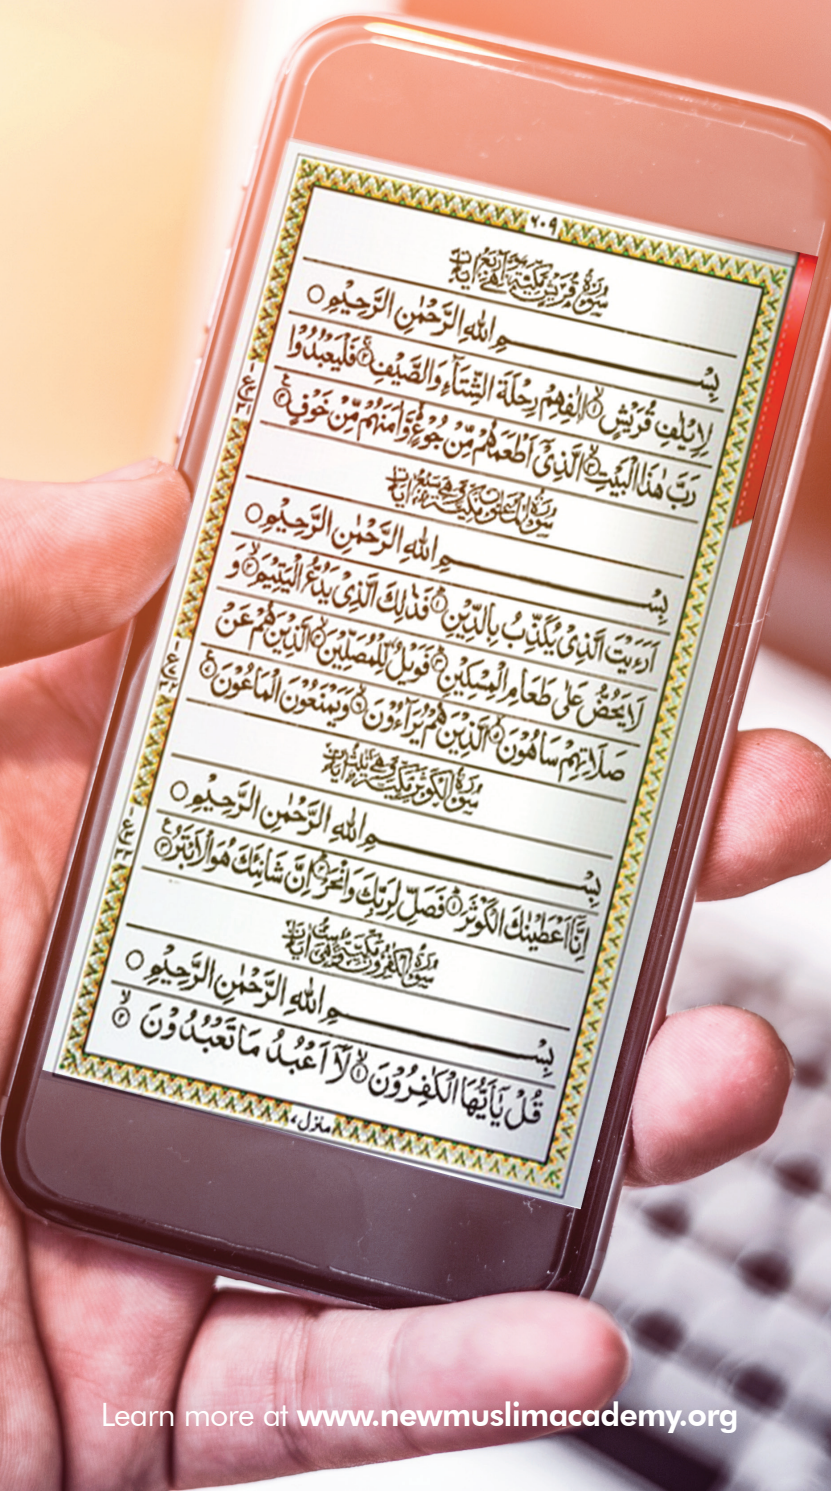 ٦٠٩
سورة قريش مكية وهي اربع ايات
بِسْمِ اللهِ الرَّحْمٰنِ الرَّحِيْمِ
لِاِيْلٰفِ قُرَيْشٍ ۙ﴿١﴾ اٖلٰفِهِمْ رِحْلَةَ الشِّتَآءِ وَالصَّيْفِ ۚ﴿٢﴾ فَلْيَعْبُدُوْا
رَبَّ هٰذَا الْبَيْتِ ۙ﴿٣﴾ الَّذِيْٓ اَطْعَمَهُمْ مِّنْ جُوْعٍ ۙ وَّاٰمَنَهُمْ مِّنْ خَوْفٍ ﴿٤﴾
سورة الماعون مكية وهي سبع ايات
بِسْمِ اللهِ الرَّحْمٰنِ الرَّحِيْمِ
اَرَءَيْتَ الَّذِيْ يُكَذِّبُ بِالدِّيْنِ ﴿١﴾ فَذٰلِكَ الَّذِيْ يَدُعُّ الْيَتِيْمَ ۙ﴿٢﴾ وَ
لَا يَحُضُّ عَلٰى طَعَامِ الْمِسْكِيْنِ ﴿٣﴾ فَوَيْلٌ لِّلْمُصَلِّيْنَ ۙ﴿٤﴾ الَّذِيْنَ هُمْ عَنْ
صَلَاتِهِمْ سَاهُوْنَ ۙ﴿٥﴾ الَّذِيْنَ هُمْ يُرَآءُوْنَ ۙ﴿٦﴾ وَيَمْنَعُوْنَ الْمَاعُوْنَ ﴿٧﴾
سورة الكوثر مكية وهي ثلث ايات
بِسْمِ اللهِ الرَّحْمٰنِ الرَّحِيْمِ
اِنَّآ اَعْطَيْنٰكَ الْكَوْثَرَ ﴿١﴾ فَصَلِّ لِرَبِّكَ وَانْحَرْ ﴿٢﴾ اِنَّ شَانِئَكَ هُوَ الْاَبْتَرُ ﴿٣﴾
سورة الكفرون مكية وهي ست ايات
بِسْمِ اللهِ الرَّحْمٰنِ الرَّحِيْمِ
قُلْ يٰٓاَيُّهَا الْكٰفِرُوْنَ ۙ﴿١﴾ لَآ اَعْبُدُ مَا تَعْبُدُوْنَ ۙ﴿٢﴾
منزل ٧
Learn more at www.newmuslimacademy.org